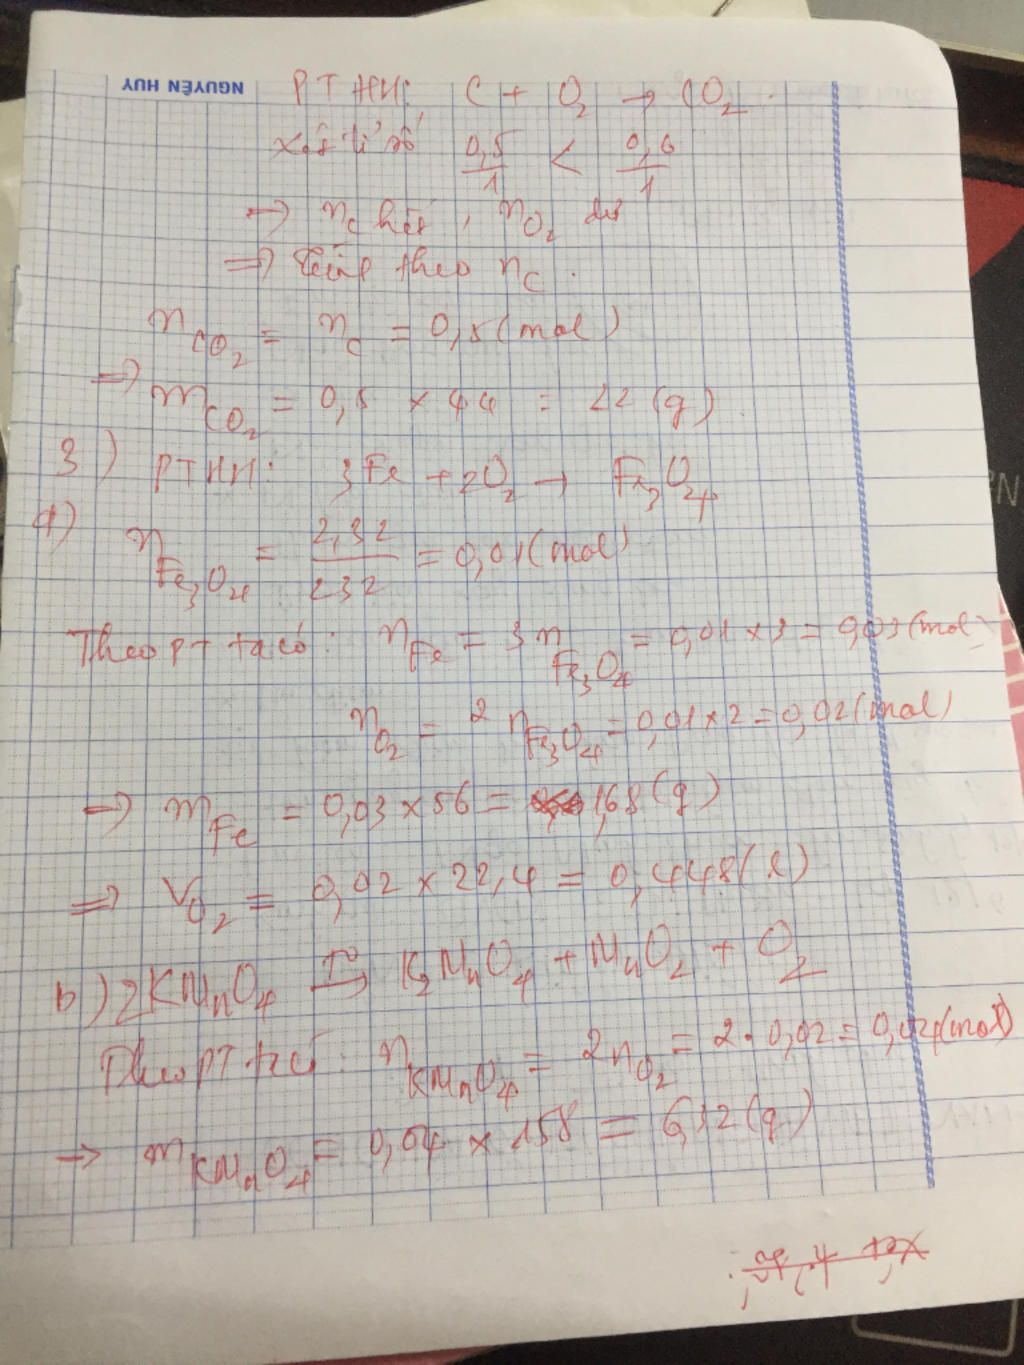 NGUYÊN HUY
PTHH: C + O2 → CO2.
Xét tỉ số 0,5/1 < 0,6/1
=> nC hết, nO2 dư
=> Tính theo nC.
nCO2 = nC = 0,5 (mol)
=> mCO2 = 0,5 × 44 = 22 (g)
3) PTHH: 3Fe + 2O2 → Fe3O4
a) nFe3O4 = 2,32/232 = 0,01 (mol)
Theo PT ta có: nFe = 3nFe3O4 = 0,01 × 3 = 0,03 (mol)
nO2 = 2nFe3O4 = 0,01 × 2 = 0,02 (mol)
=> mFe = 0,03 × 56 = 1,68 (g)
=> VO2 = 0,02 × 22,4 = 0,448 (l)
b) 2KMnO4 t° → K2MnO4 + MnO2 + O2
Theo PT tcó: nKMnO4 = 2nO2 = 2 . 0,02 = 0,04 (mol)
→ mKMnO4 = 0,04 × 158 = 6,32 (g)